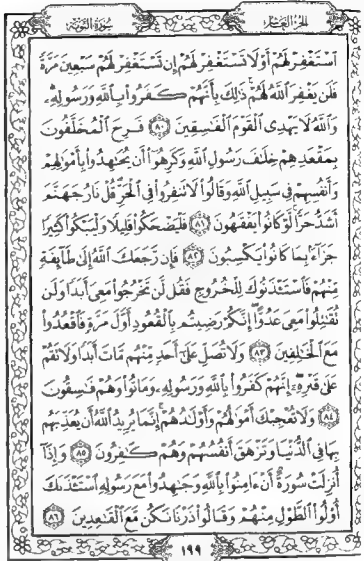 سُورَةُ التَّوْبَةِ
الجُزْءُ العَاشِرُ
ٱسْتَغْفِرْ لَهُمْ أَوْ لَا تَسْتَغْفِرْ لَهُمْ إِن تَسْتَغْفِرْ لَهُمْ سَبْعِينَ مَرَّةً
فَلَن يَغْفِرَ ٱللَّهُ لَهُمْ ذَٰلِكَ بِأَنَّهُمْ كَفَرُوا۟ بِٱللَّهِ وَرَسُولِهِۦ
وَٱللَّهُ لَا يَهْدِى ٱلْقَوْمَ ٱلْفَٰسِقِينَ ٨٠ فَرِحَ ٱلْمُخَلَّفُونَ
بِمَقْعَدِهِمْ خِلَٰفَ رَسُولِ ٱللَّهِ وَكَرِهُوٓا۟ أَن يُجَٰهِدُوا۟ بِأَمْوَٰلِهِمْ
وَأَنفُسِهِمْ فِى سَبِيلِ ٱللَّهِ وَقَالُوا۟ لَا تَنفِرُوا۟ فِى ٱلْحَرِّ قُلْ نَارُ جَهَنَّمَ
أَشَدُّ حَرًّا لَّوْ كَانُوا۟ يَفْقَهُونَ ٨١ فَلْيَضْحَكُوا۟ قَلِيلًا وَلْيَبْكُوا۟ كَثِيرًا
جَزَآءًۢ بِمَا كَانُوا۟ يَكْسِبُونَ ٨٢ فَإِن رَّجَعَكَ ٱللَّهُ إِلَىٰ طَآئِفَةٍ
مِّنْهُمْ فَٱسْتَـْٔذَنُوكَ لِلْخُرُوجِ فَقُل لَّن تَخْرُجُوا۟ مَعِىَ أَبَدًا وَلَن
تُقَٰتِلُوا۟ مَعِىَ عَدُوًّا إِنَّكُمْ رَضِيتُم بِٱلْقُعُودِ أَوَّلَ مَرَّةٍ فَٱقْعُدُوا۟
مَعَ ٱلْخَٰلِفِينَ ٨٣ وَلَا تُصَلِّ عَلَىٰٓ أَحَدٍ مِّنْهُم مَّاتَ أَبَدًا وَلَا تَقُمْ
عَلَىٰ قَبْرِهِۦٓ إِنَّهُمْ كَفَرُوا۟ بِٱللَّهِ وَرَسُولِهِۦ وَمَاتُوا۟ وَهُمْ فَٰسِقُونَ
٨٤ وَلَا تُعْجِبْكَ أَمْوَٰلُهُمْ وَأَوْلَٰدُهُمْ إِنَّمَا يُرِيدُ ٱللَّهُ أَن يُعَذِّبَهُم
بِهَا فِى ٱلدُّنْيَا وَتَزْهَقَ أَنفُسُهُمْ وَهُمْ كَٰفِرُونَ ٨٥ وَإِذَآ
أُنزِلَتْ سُورَةٌ أَنْ ءَامِنُوا۟ بِٱللَّهِ وَجَٰهِدُوا۟ مَعَ رَسُولِهِ ٱسْتَـْٔذَنَكَ
أُو۟لُوا۟ ٱلطَّوْلِ مِنْهُمْ وَقَالُوا۟ ذَرْنَا نَكُن مَّعَ ٱلْقَٰعِدِينَ ٨٦
١٩٩